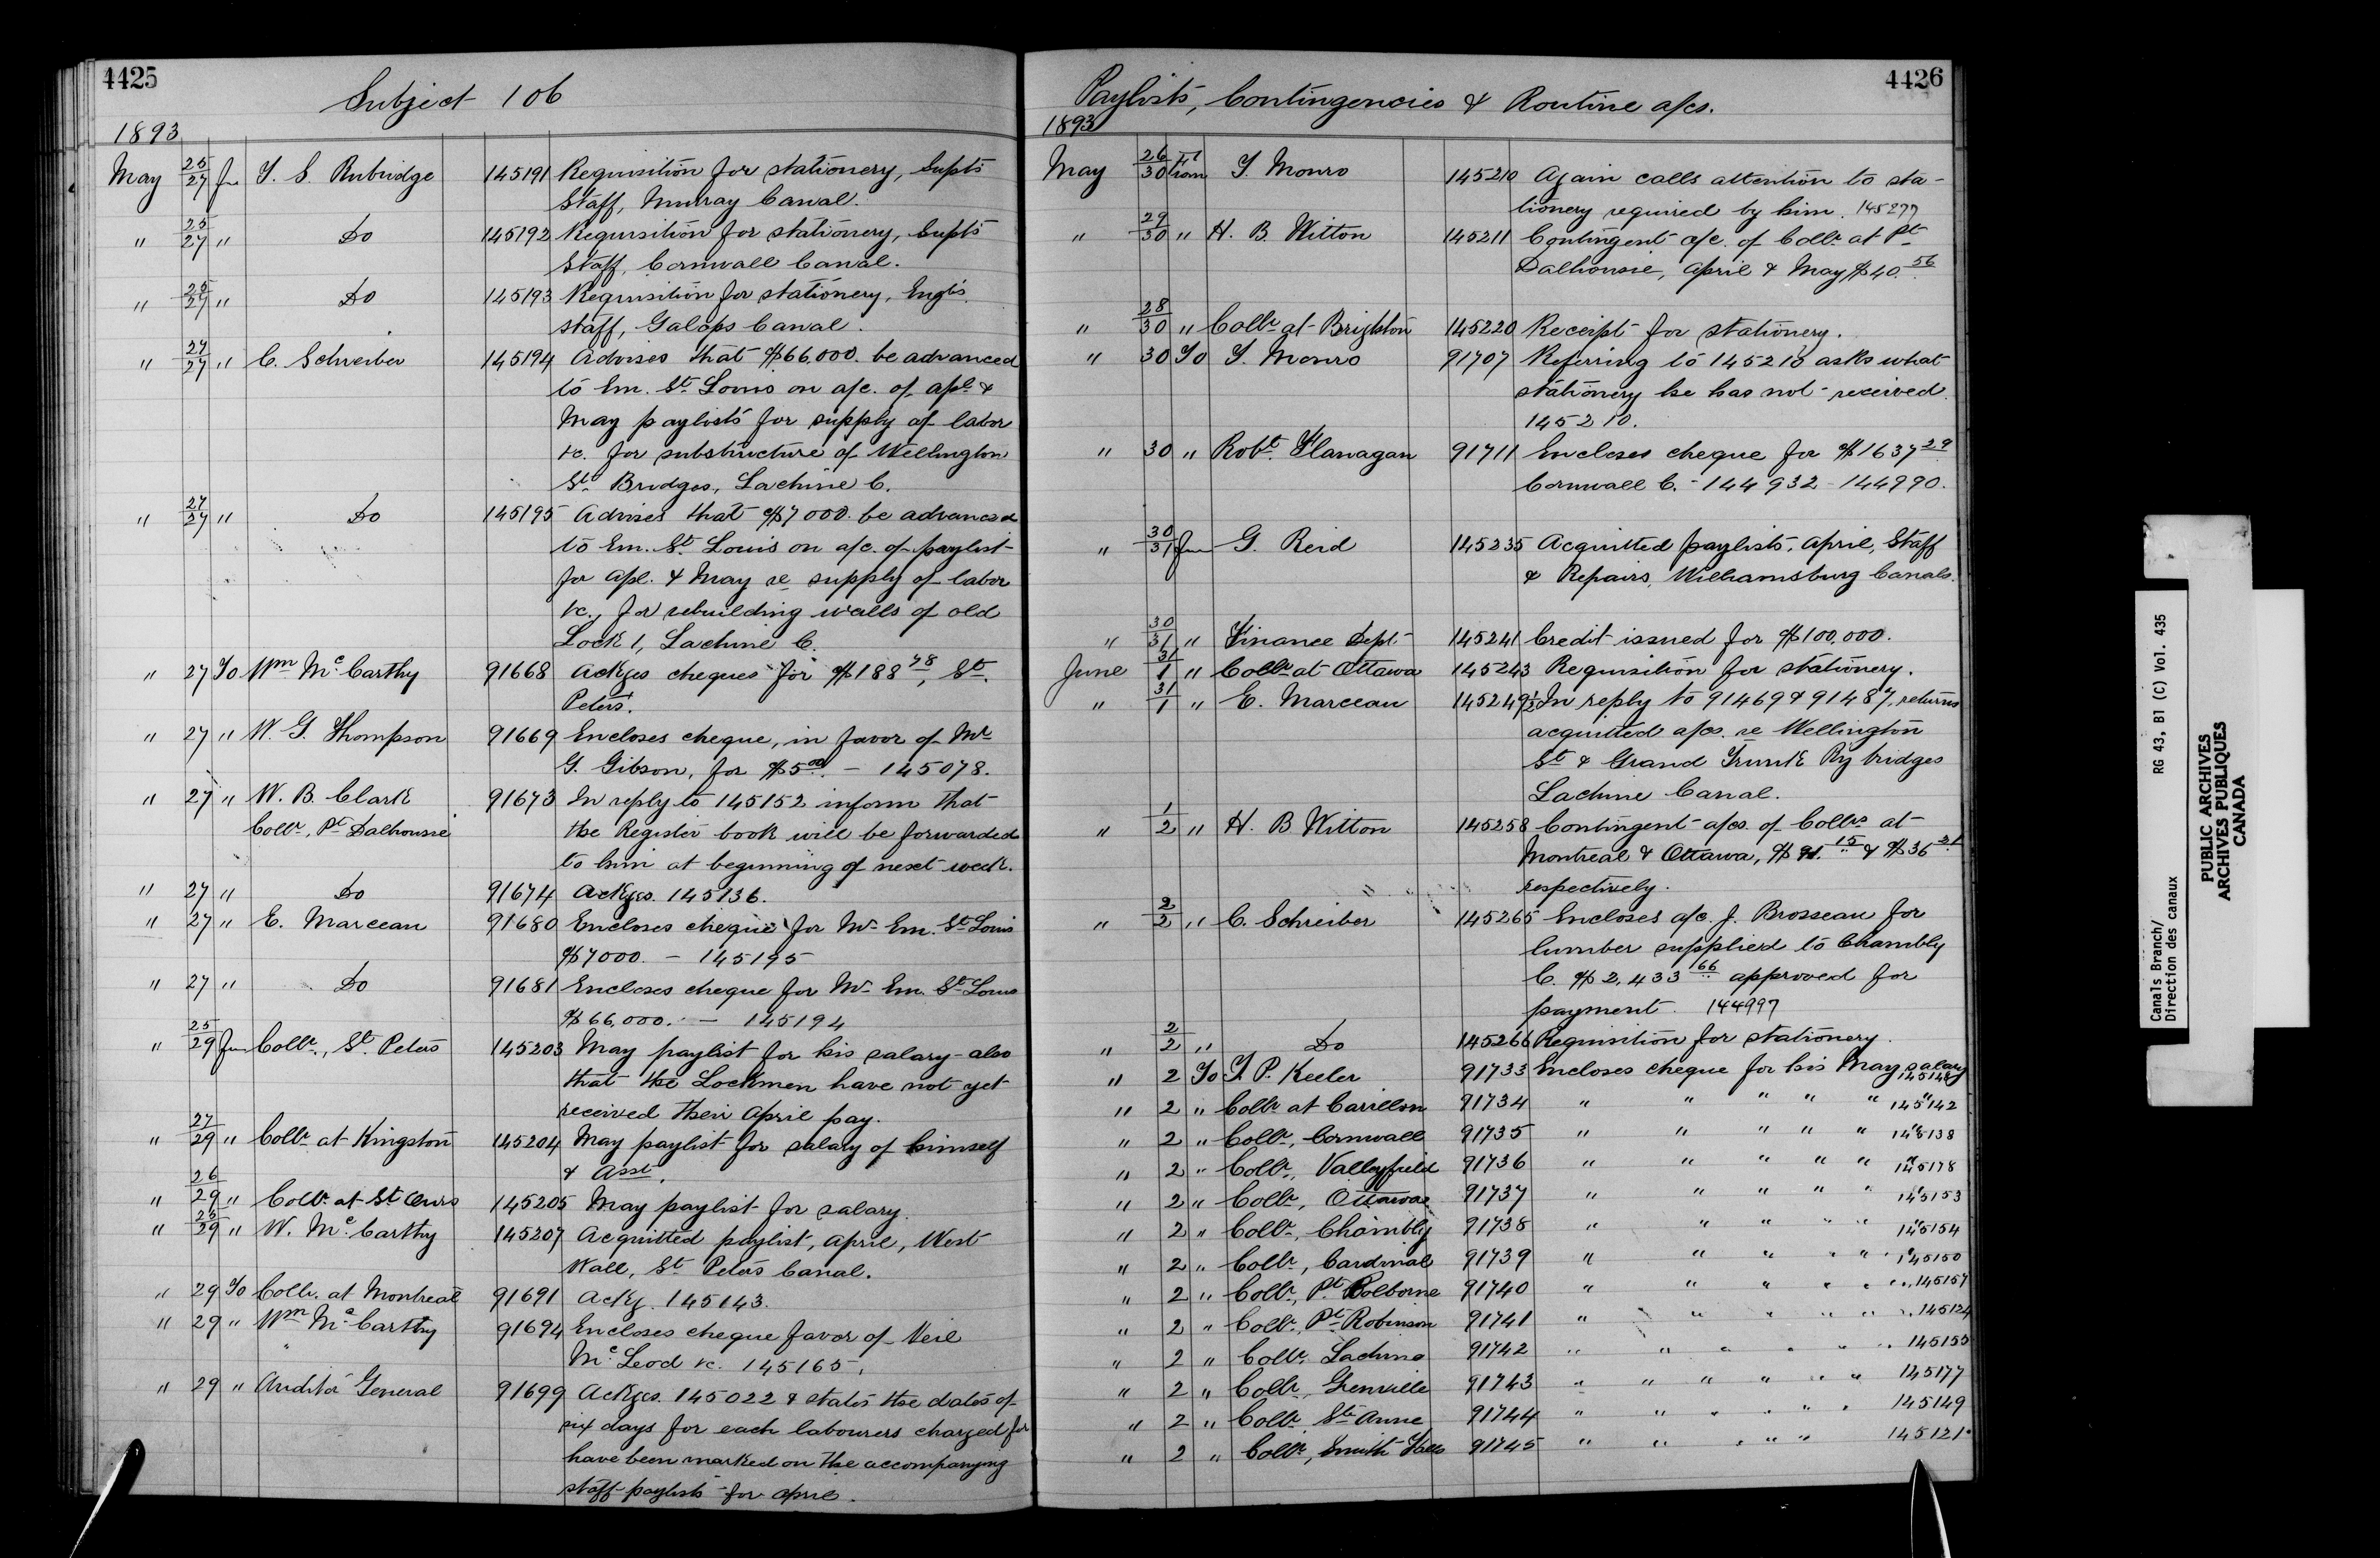 4425
Subject 106
1893
May 25/27 fm T. S. Rubidge 145191 Requisition for stationery, Supt's
Staff, Murray Canal.
" 25/27 " Do 145192 Requisition for stationery, Supt's
Staff, Cornwall Canal.
" 25/27 " Do 145193 Requisition for stationery, Engr's
staff, Galops Canal.
" 27/27 " C. Schreiber 145194 Advises that $66,000. be advanced
to Em. St. Louis on a/c. of apl. &
May paylists for supply of labor
&c. for substructure of Wellington
St. Bridges, Lachine C.
" 27/27 " Do 145195 Advises that $7000. be advanced
to Em. St. Louis on a/c. of paylist
for apl. & May re supply of labor
&c., for rebuilding walls of old
Lock 1, Lachine C.
" 27 To Wm McCarthy 91668 Ackges cheques for $188 78, St.
Peters.
" 27 " W. G. Thompson 91669 Encloses cheque, in favor of Mr
G. Gibson, for $5.00. - 145078.
" 27 " W. B. Clark 91673 In reply to 145152 inform that
Collr, Pt Dalhousie the Register book will be forwarded
to him at beginning of next week.
" 27 " Do 91674 Ackges. 145136.
" 27 " E. Marceau 91680 Encloses cheque for Mr Em. St Louis
$7000. - 145195
" 27 " Do 91681 Encloses cheque for Mr Em. St Louis
$66,000. - 145194
" 25/29 fm Collr., St. Peters 145203 May paylist for his salary - also
that the Lockmen have not yet
received their April pay.
" 27/29 " Collr at Kingston 145204 May paylist for salary of himself
& Asst.
" 26/29 " Collr at St Ours 145205 May paylist for salary.
" 29 " W. McCarthy 145207 Acquitted paylist, April, West
Wall, St Peters Canal.
" 29 To Collr. at Montreal 91691 Ackg. 145143.
" 29 " Wm McCarthy 91694 Encloses cheque favor of Neil
McLeod &c. 145165.
" 29 " Auditor General 91699 Ackges. 145022 & states the dates of
six days for each labourers charged for
have been marked on the accompanying
staff paylists for April.
4426
Paylists, Contingencies & Routine a/cs.
1893
May 26/30 from T. Monro 145210 Again calls attention to sta-
tionery required by him. 145277
" 29/30 " H. B. Witton 145211 Contingent a/c. of Collr. at Pt
Dalhousie, April & May $40.56
" 28/30 " Collr at Brighton 145220 Receipt for stationery.
" 30 To T. Monro 91707 Referring to 145210 asks what
stationery he has not received.
145210.
" 30 " Robt. Flanagan 91711 Encloses cheque for $1637 29
Cornwall C. - 144932 - 144990.
" 30/31 fm G. Reid 145235 Acquitted paylists, April, Staff
& Repairs, Williamsburg Canals.
" 30/31 " Finance Dept 145241 Credit issued for $100,000.
June 31/1 " Collr at Ottawa 145243 Requisition for stationery.
" 31/1 " E. Marceau 145249½ In reply to 91469 & 91487, returns
acquitted a/cs. re Wellington
St & Grand Trunk Ry bridges
Lachine Canal.
" 1/2 " H. B Witton 145258 Contingent a/cs. of Collrs at
Montreal & Ottawa, $91.15 & $36
respectively.
" 2/2 " C. Schreiber 145265 Encloses a/c. J. Brosseau for
lumber supplied to Chambly
C. $2,433 approved for
payment. 144997
" 2/2 " Do 145266 Requisition for stationery.
" 2 To T. P. Keeler 91733 Encloses cheque for his May salary
" 2 " Collr at Carillon 91734 " " " " " 145142
" 2 " Collr, Cornwall 91735 " " " " " 145138
" 2 " Collr, Valleyfield 91736 " " " " " 145178
" 2 " Collr, Ottawa 91737 " " " " " 145153
" 2 " Collr, Chambly 91738 " " " " " 145154
" 2 " Collr, Cardinal 91739 " " " " " 145150
" 2 " Collr, Pt. Colborne 91740 " " " " " 145157
" 2 " Collr, Pt Robinson 91741 " " " " " 145124
" 2 " Collr. Lachine 91742 " " " " " 145155
" 2 " Collr, Grenville 91743 " " " " " 145177
" 2 " Collr, Ste Anne 91744 " " " " " 145149
" 2 " Collr, Smith Falls 91745 " " " " " 145121
Canals Branch/ RG 43, B1 (C) Vol. 435
Direction des canaux
PUBLIC ARCHIVES
ARCHIVES PUBLIQUES
CANADA